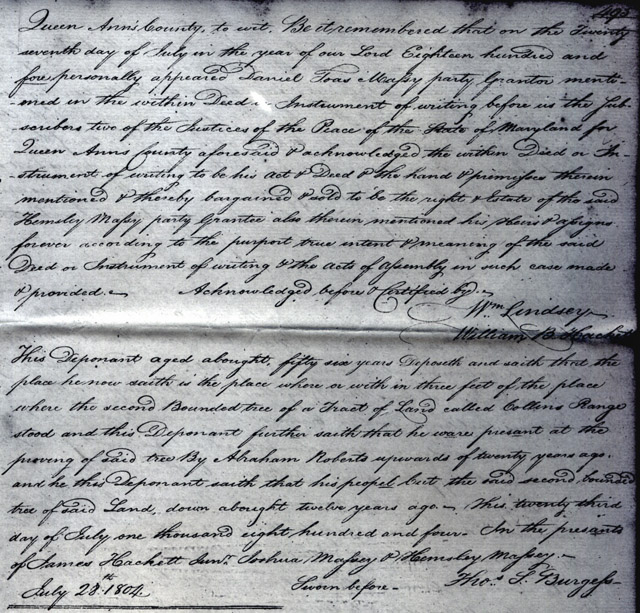 Queen Ann's County, to wit. Be it remembered that on the Twenty
seventh day of July in the year of our Lord Eighteen hundred and
fore personally appeared Daniel Toas Massy party Grantor menti-
-oned in the within Deed or Instrument of writing before us the Sub-
-scribers two of the Justices of the Peace of the State of Maryland for
Queen Anns County aforesaid & acknowledged the within Deed or In-
-strument of writing to be his Act & Deed & the land & premisses therein
mentioned & thereby bargained & sold to be the right & Estate of the said
Hemsley Massy party Grantee also therein mentioned his Heirs & assigns
forever according to the purport true intent & meaning of the said
Deed or Instrument of writing & the acts of Assembly in such case made
& provided. Acknowledged before & Certified by
Wm Lindsey
William B. Hackett
This Deponant aged abought fifty six years Deposeth and saith that the
place he now saith is the place whore or with in three feet of the place
where the second Bounded tree of a Tract of Land called Collins Range
stood and this Deponant further saith that he ware presant at the
proving of said tree By Abraham Roberts upwards of twenty years ago.
and he this Deponant saith that his peopel cut the said second bounded
tree of said Land, down abought twelve years ago. This twenty third
day of July one thousand eight hundred and four. In the presants
of James Hackett Junr Joshua Massey & Hemsley Massey.
July 28th 1804. Sworn before Thos. S. Burgess